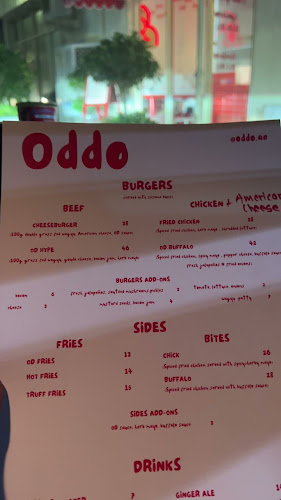 Oddo
@oddo.ae
BURGERS
served with coconut buns
BEEF
CHICKEN + American Cheese
CHEESEBURGER 38
100g double grass fed wagyu, American cheese, OD sauce
OD HYPE 40
100g grass fed wagyu, gouda cheese, bacon jam, herb mayo
FRIED CHICKEN
Spiced fried chicken, herb mayo, shredded lettuce
OD BUFFALO 42
Spiced fried chicken, spicy mayo, pepper cheese, buffalo sauce
fresh jalapeños & fried onions
BURGERS ADD-ONS
bacon 6
fresh jalapeños, sautéed mushrooms, pickles 3
tomato, lettuce, onions
cheese 2
mustard seeds, bacon jam 4
wagyu patty
SIDES
FRIES
BITES
OD FRIES 13
HOT FRIES 14
TRUFF FRIES 15
CHICK 26
Spiced fried chicken, served with spicy/herb mayo
BUFFALO 28
Spiced fried chicken, served with buffalo sauce
SIDES ADD-ONS
OD sauce, herb mayo, buffalo sauce 3
DRINKS
7
GINGER ALE